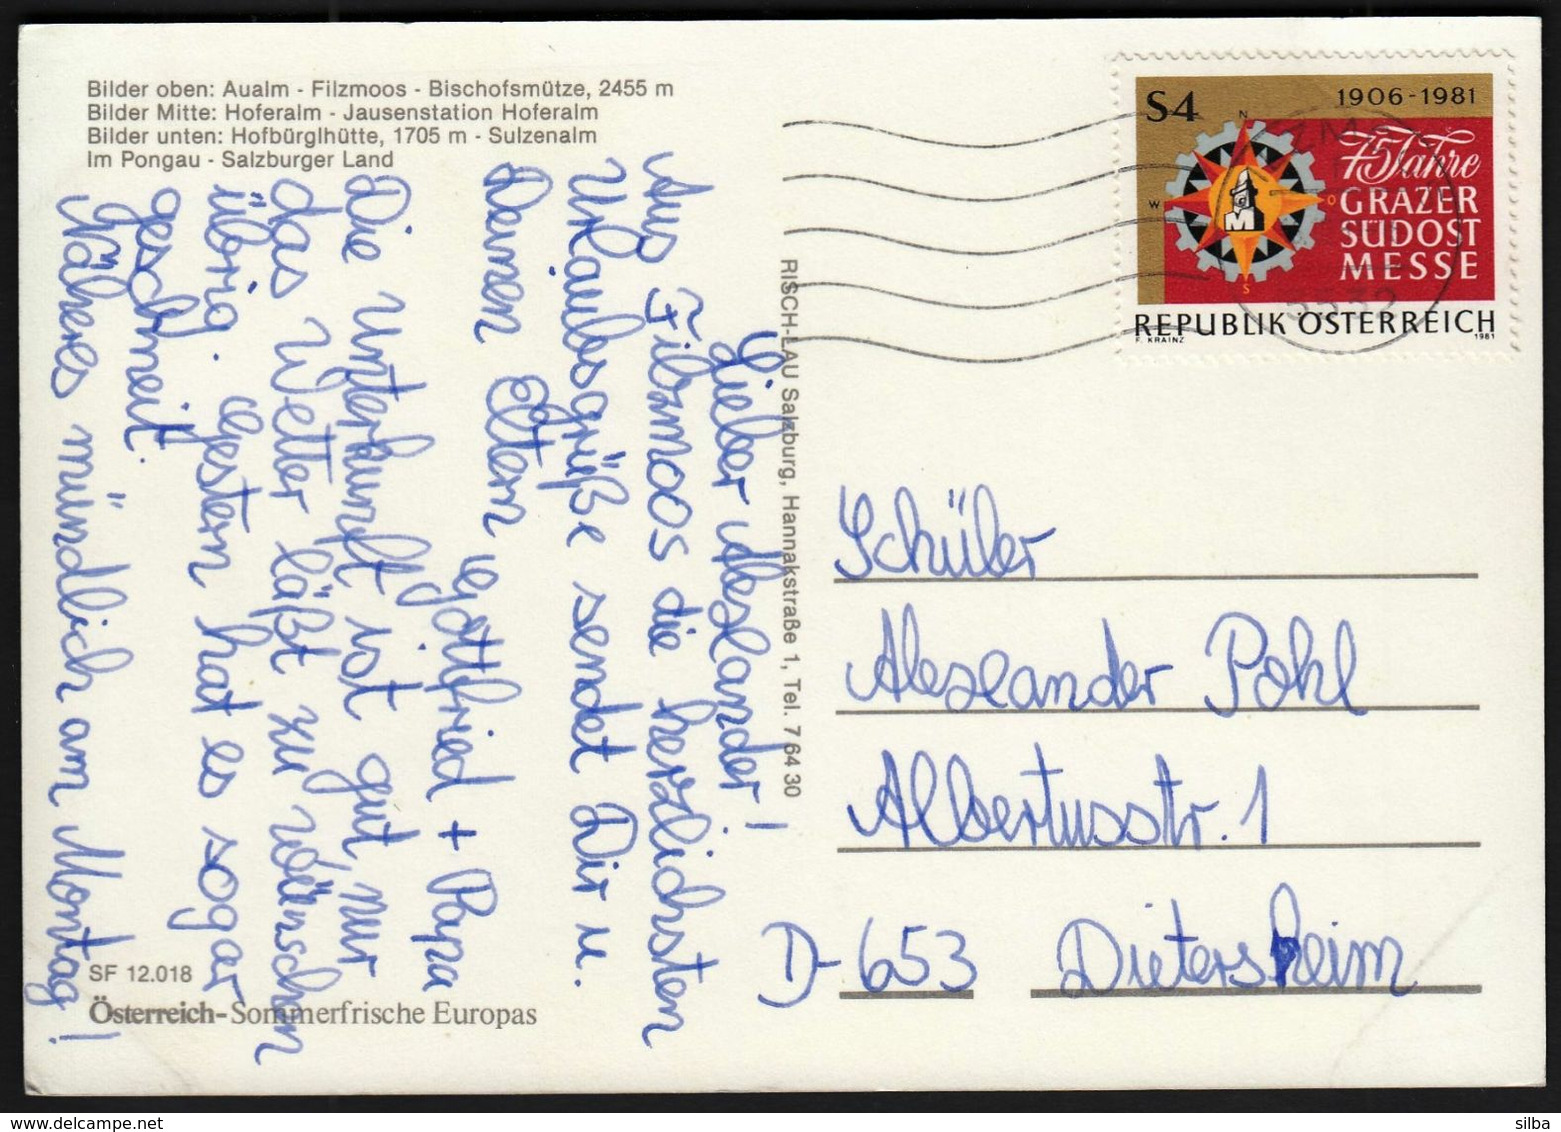 Bilder oben: Aualm - Filzmoos - Bischofsmütze, 2455 m
Bilder Mitte: Hoferalm - Jausenstation Hoferalm
Bilder unten: Hofbürglhütte, 1705 m - Sulzenalm
Im Pongau - Salzburger Land
Lieber Alexander!
Aus Filzmoos die herzlichsten
Urlaubsgrüße sendet Dir u.
Deinen Eltern
Gottfried + Papa
Die Unterkunft ist gut, nur
das Wetter läßt zu wünschen
übrig. Gestern hat es sogar
geschneit.
Näheres mündlich am Montag!
RISCH-LAU Salzburg, Hannakstraße 1, Tel. 7 64 30
SF 12.018
Österreich-Sommerfrische Europas
S4
1906-1981
75 Jahre
GRAZER
SÜDOST
MESSE
N
W
O
S
M
REPUBLIK ÖSTERREICH
F. KRAINZ
1981
5532
Schüler
Alexander Pohl
Albertusstr. 1
D-653 Dietersheim
silba